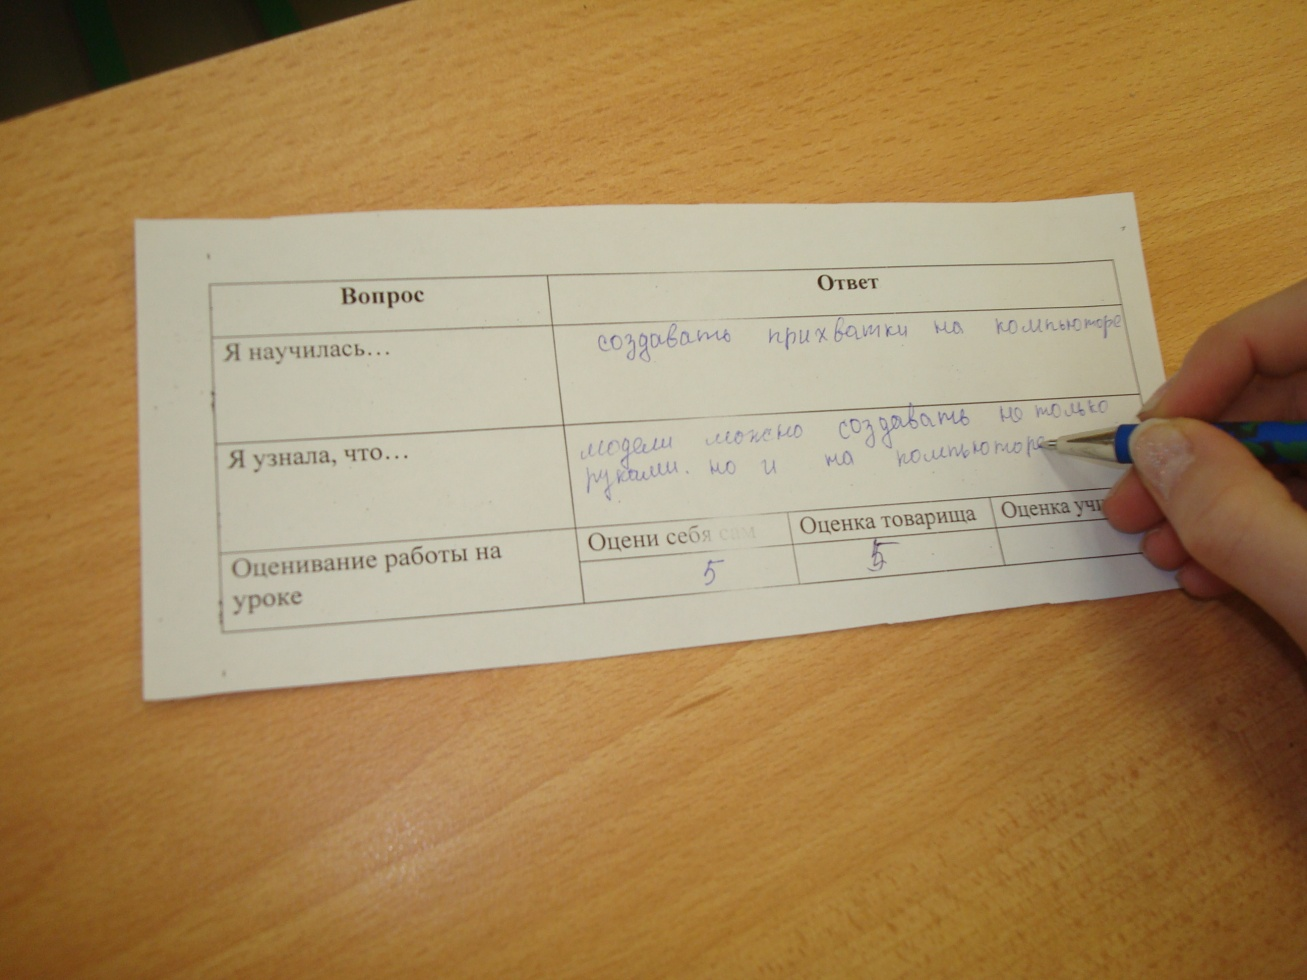 Вопрос Ответ
Я научилась... создавать прихватки на компьюторе
Я узнала, что... модели можно создавать не только
руками. но и на компьюторе
Оценивание работы на
уроке
Оцени себя сам Оценка товарища Оценка
5 5